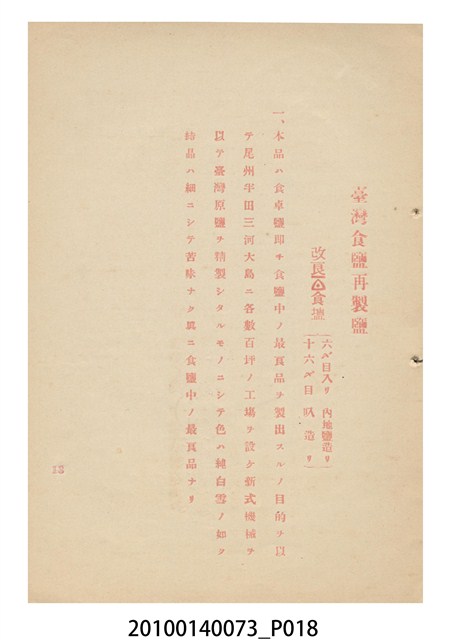 臺灣食鹽再製鹽
改良食塩
六百目入リ 內地鹽造リ
十六百目叺造リ
一、本品ハ食卓鹽卽チ食鹽中ノ最良品ヲ製出スルノ目的ヲ以
テ尾州半田三河大島ニ各數百坪ノ工場ヲ設ケ新式機械ヲ
以テ臺灣原鹽ヲ精製シタルモノニシテ色ハ純白雪ノ如ク
結晶ハ細ニシテ苦味ナク異ニ食鹽中ノ最良品ナリ
13
20100140073_P018